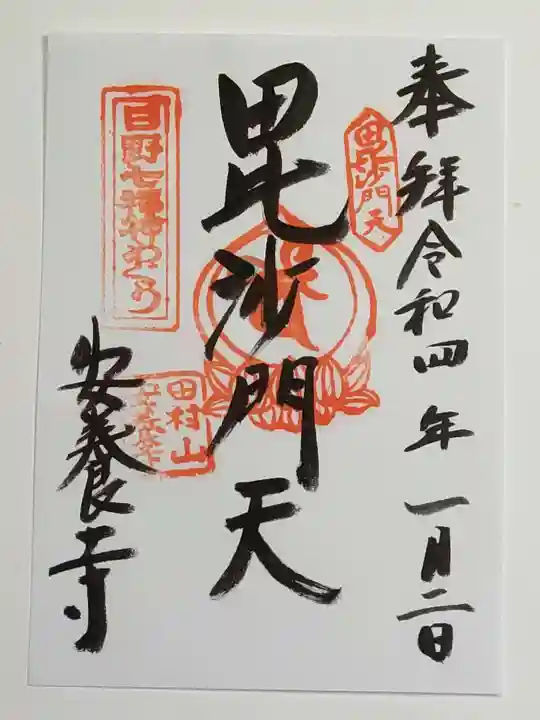 奉拝 令和四年 一月二日
毘沙門天
毘沙門天
日野七福神めぐり
田村山
安養寺
安養寺